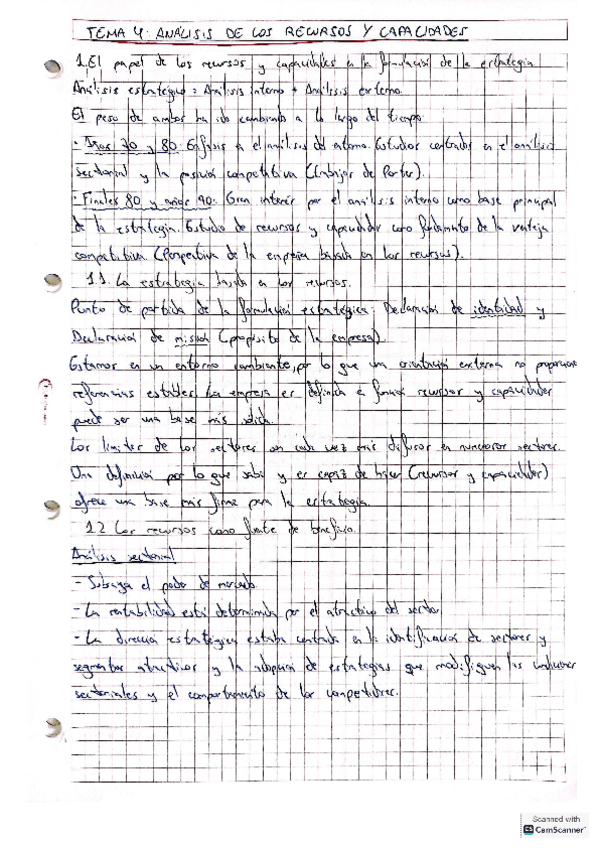 TEMA 4: ANÁLISIS DE LOS RECURSOS Y CAPACIDADES
1. El papel de los recursos y capacidades en la formulación de la estrategia
Análisis estratégico = Análisis interno + Análisis externo.
El peso de ambos ha ido cambiando a lo largo del tiempo:
· Años 70 y 80: Énfasis en el análisis del entorno. Estudios centrados en el análisis
sectorial y la posición competitiva (trabajos de Porter).
· Finales 80 y años 90: Gran interés por el análisis interno como base principal
de la estrategia. Estudio de recursos y capacidades como fundamento de la ventaja
competitiva (Perspectiva de la empresa basada en los recursos).
1.1. La estrategia basada en los recursos.
Punto de partida de la formulación estratégica: Declaración de identidad y
Declaración de misión (propósito de la empresa).
Estamos en un entorno cambiante, por lo que una orientación externa no proporciona
referencias estables. La empresa es definida en función recursos y capacidades
puede ser una base más sólida.
Los límites de los sectores son cada vez más difusos en numerosos sectores.
Una definición por lo que sabe y es capaz de hacer (recursos y capacidades)
ofrece una base más firme para la estrategia.
1.2 Los recursos como fuente de beneficio.
Análisis sectorial
- Subraya el poder de mercado.
- La rentabilidad está determinada por el atractivo del sector.
- La dirección estratégica estaba centrada en la identificación de sectores y
segmentos atractivos y la adopción de estrategias que modifiquen las condiciones
sectoriales y el comportamiento de los competidores.
Scanned with
CS CamScanner